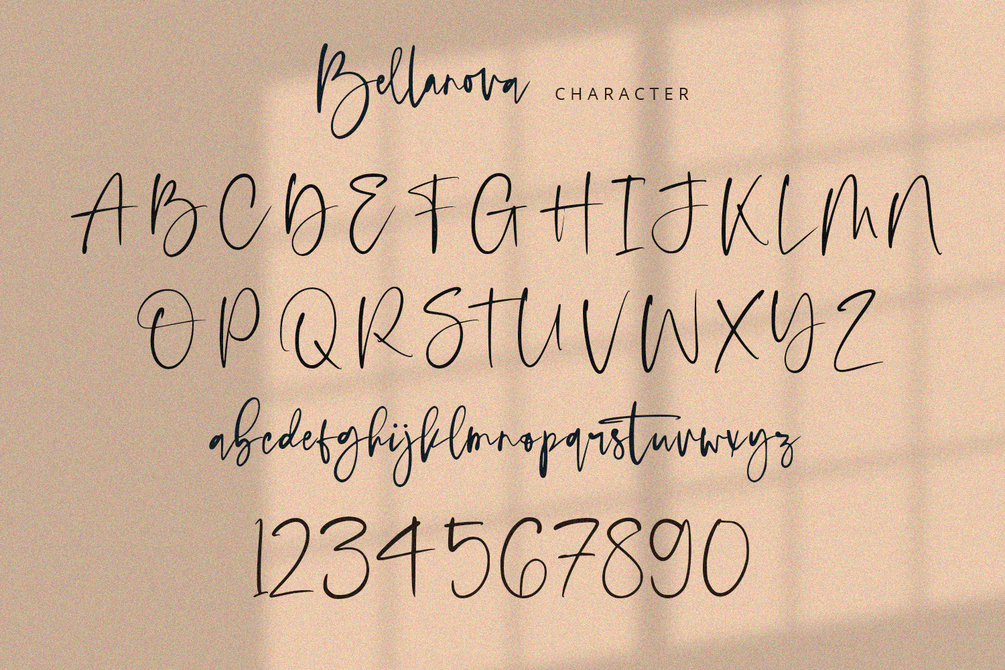 Bellanova CHARACTER
ABCDEFGHIJKLMN
OPQRSTUVWXYZ
abcdefghijklmnopqrstuvwxyz
1234567890